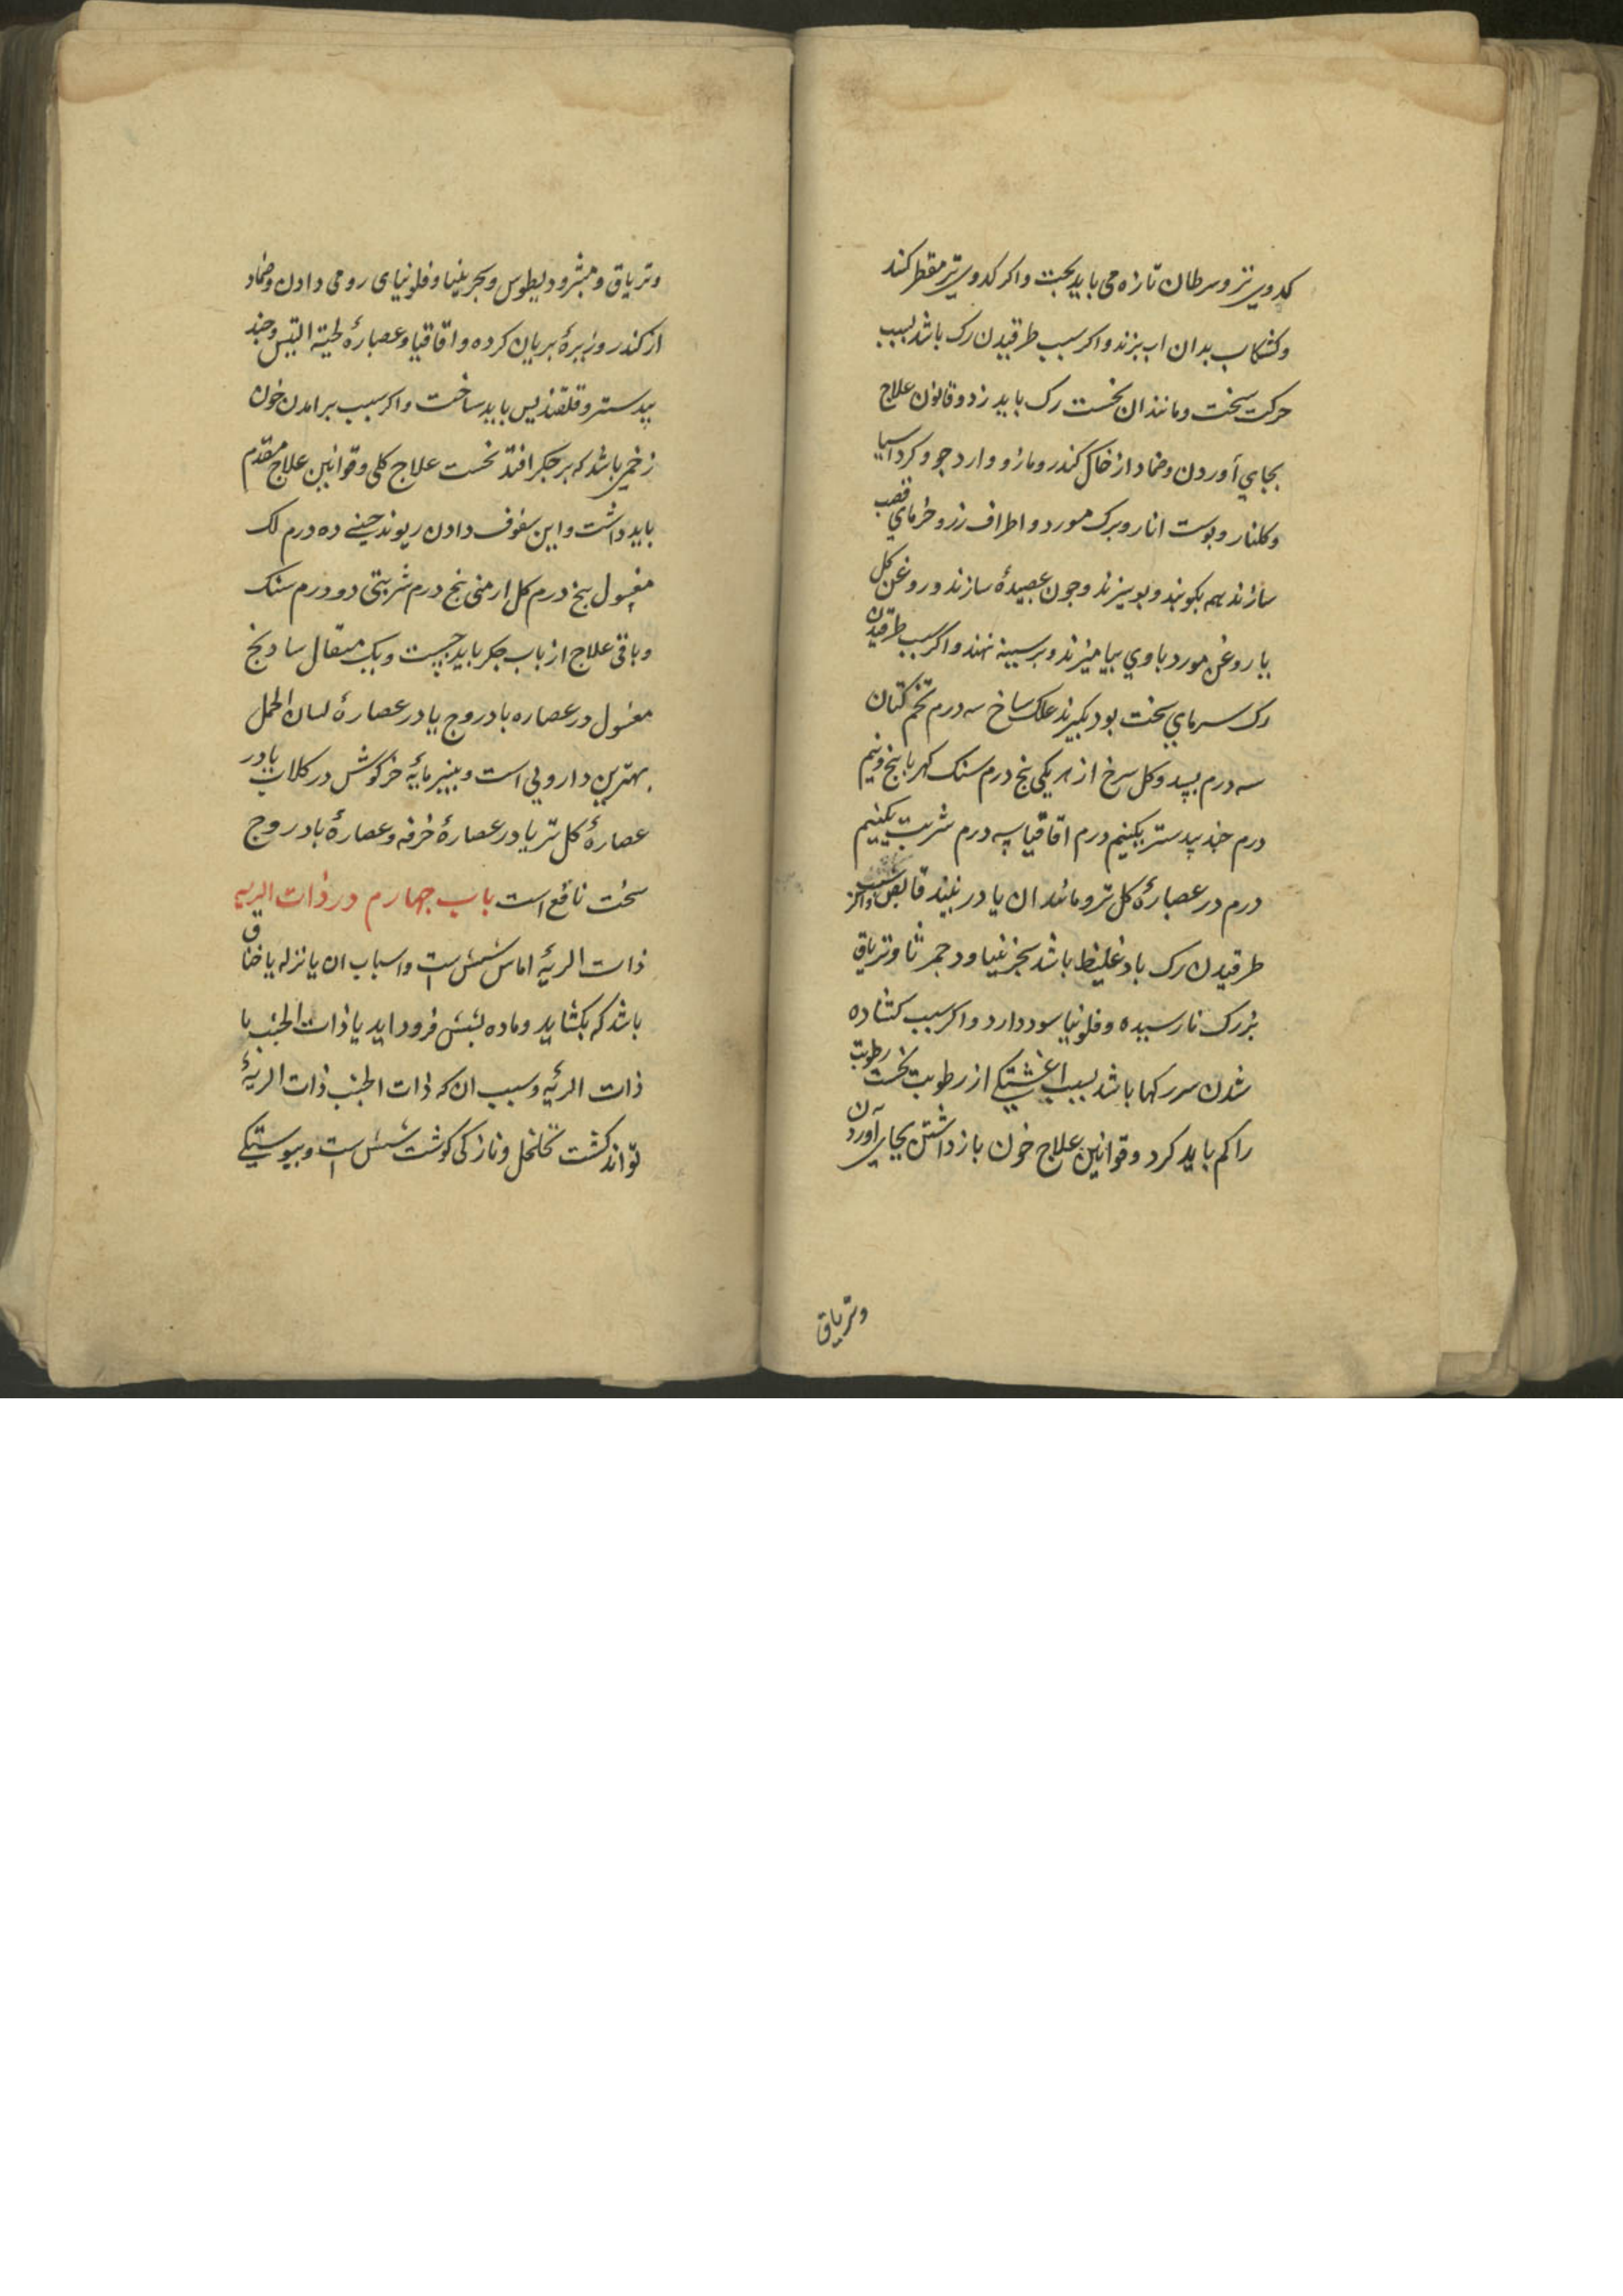 کدوی تر و سرطان تازه می باید پخت واکر کدوی تر مقطر کند
وکشکاب بدان اب بزند واکر سبب طرقیدن رک باشد بسبب
حرکت سخت ومانند ان نخست رک باید زد وقانون علاج
بجای آوردن وضماد از خاک کندر ومازو وارد جو وکرد اسیا
وکلنار وپوست انار وبرک مورد و اطراف رز وخرمای قصب
سازند همه بکوبند وببیزند وجون عصیدهٔ سازند وروغن کل
یا روغن مورد باوی بیامیزند وبر سینه نهند واکر سبب طرقیدن
رک سرمای سخت بود بکیرند علک سه درم تخم کتان
سه درم بسد وکل سرخ از هر یکی پنج درم سنک کهربا پنج ونیم
درم جند بیدستر یکنیم درم اقاقیا سه درم شربت یکنیم
درم در عصارهٔ کل تر ومانند ان یا در نبیذ قابض واکر سبب
طرقیدن رک باد غلیظ باشد سجزنیا ودحمرثا وتریاق
بزرک نارسیده وفلونیا سود دارد واکر سبب کشاده
شدن سر رکها باشد بسبب اغشتکی از رطوبت نخست رطوبت
را کم باید کرد وقوانین علاج خون باز داشتن بجای آوردن
وتریاق
وتریاق ومثرودیطوس وسجزینیا وفلونیای رومی دادن وضماد
از کندر وزیرهٔ بریان کرده واقاقیا وعصارهٔ لحیة التیس وجند
بیدستر وقلقدیس باید ساخت واکر سبب برامدن خون
زخمی باشد که بر جکر افتد نخست علاج کلی وقوانین علاج مقدم
باید داشت واین سفوف دادن ریوند چینی ده درم لک
مغسول پنج درم کل ارمنی پنج درم شربتی دو درم سنک
وباقی علاج از باب جکر باید جست ویک مثقال سادنج
مغسول در عصاره بادروج یا در عصارهٔ لسان الحمل
بهترین دارویی است وپنیر مایهٔ خرکوش در کلاب یا در
عصارهٔ کل تر یا در عصارهٔ خرفه وعصارهٔ بادروج
سخت نافع است باب جهارم در ذات الریه
ذات الریهٔ اماس شش است واسباب ان یا نزله یا خناق
باشد که بکشاید وماده بشش فرود اید یا ذات الجنب با
ذات الریه وسبب ان که ذات الجنب ذات الریهٔ
تواند کشت تخلخل ونازکی کوشت شش است وپیوستیکی